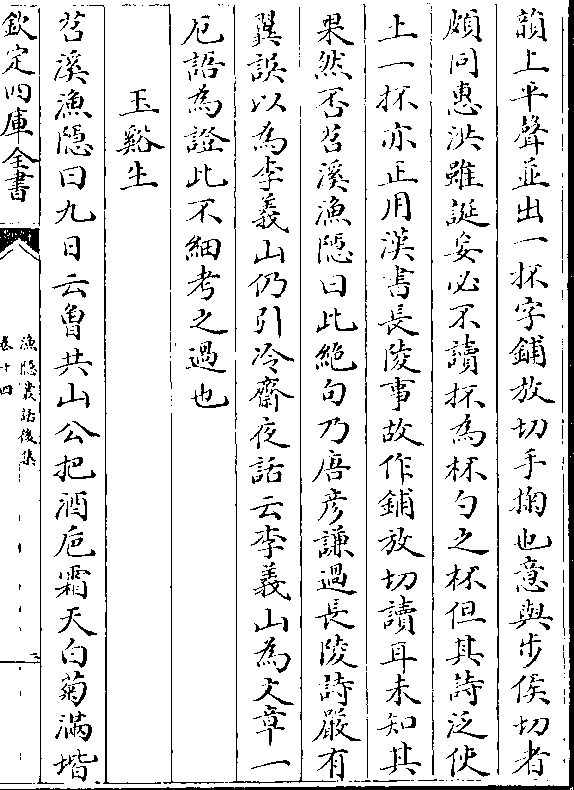 韻上平聲並出一抔字鋪放切手掬也意與步侯切者
頗同惠洪雖誕妄必不讀抔為杯勺之杯但其詩泛使
上一抔亦正用漢書長陵事故作鋪放切讀耳未知其
果然否苕溪漁隠曰此絶句乃唐彦謙過長陵詩嚴有
翼誤以為李義山仍引冷齋夜話云李義山為文章一
厄語為證此不細考之過也
玉谿生
苕溪漁隠曰九日云曾共山公把酒巵霜天白菊滿堦
欽定四庫全書
漁隠叢話後集
卷十四